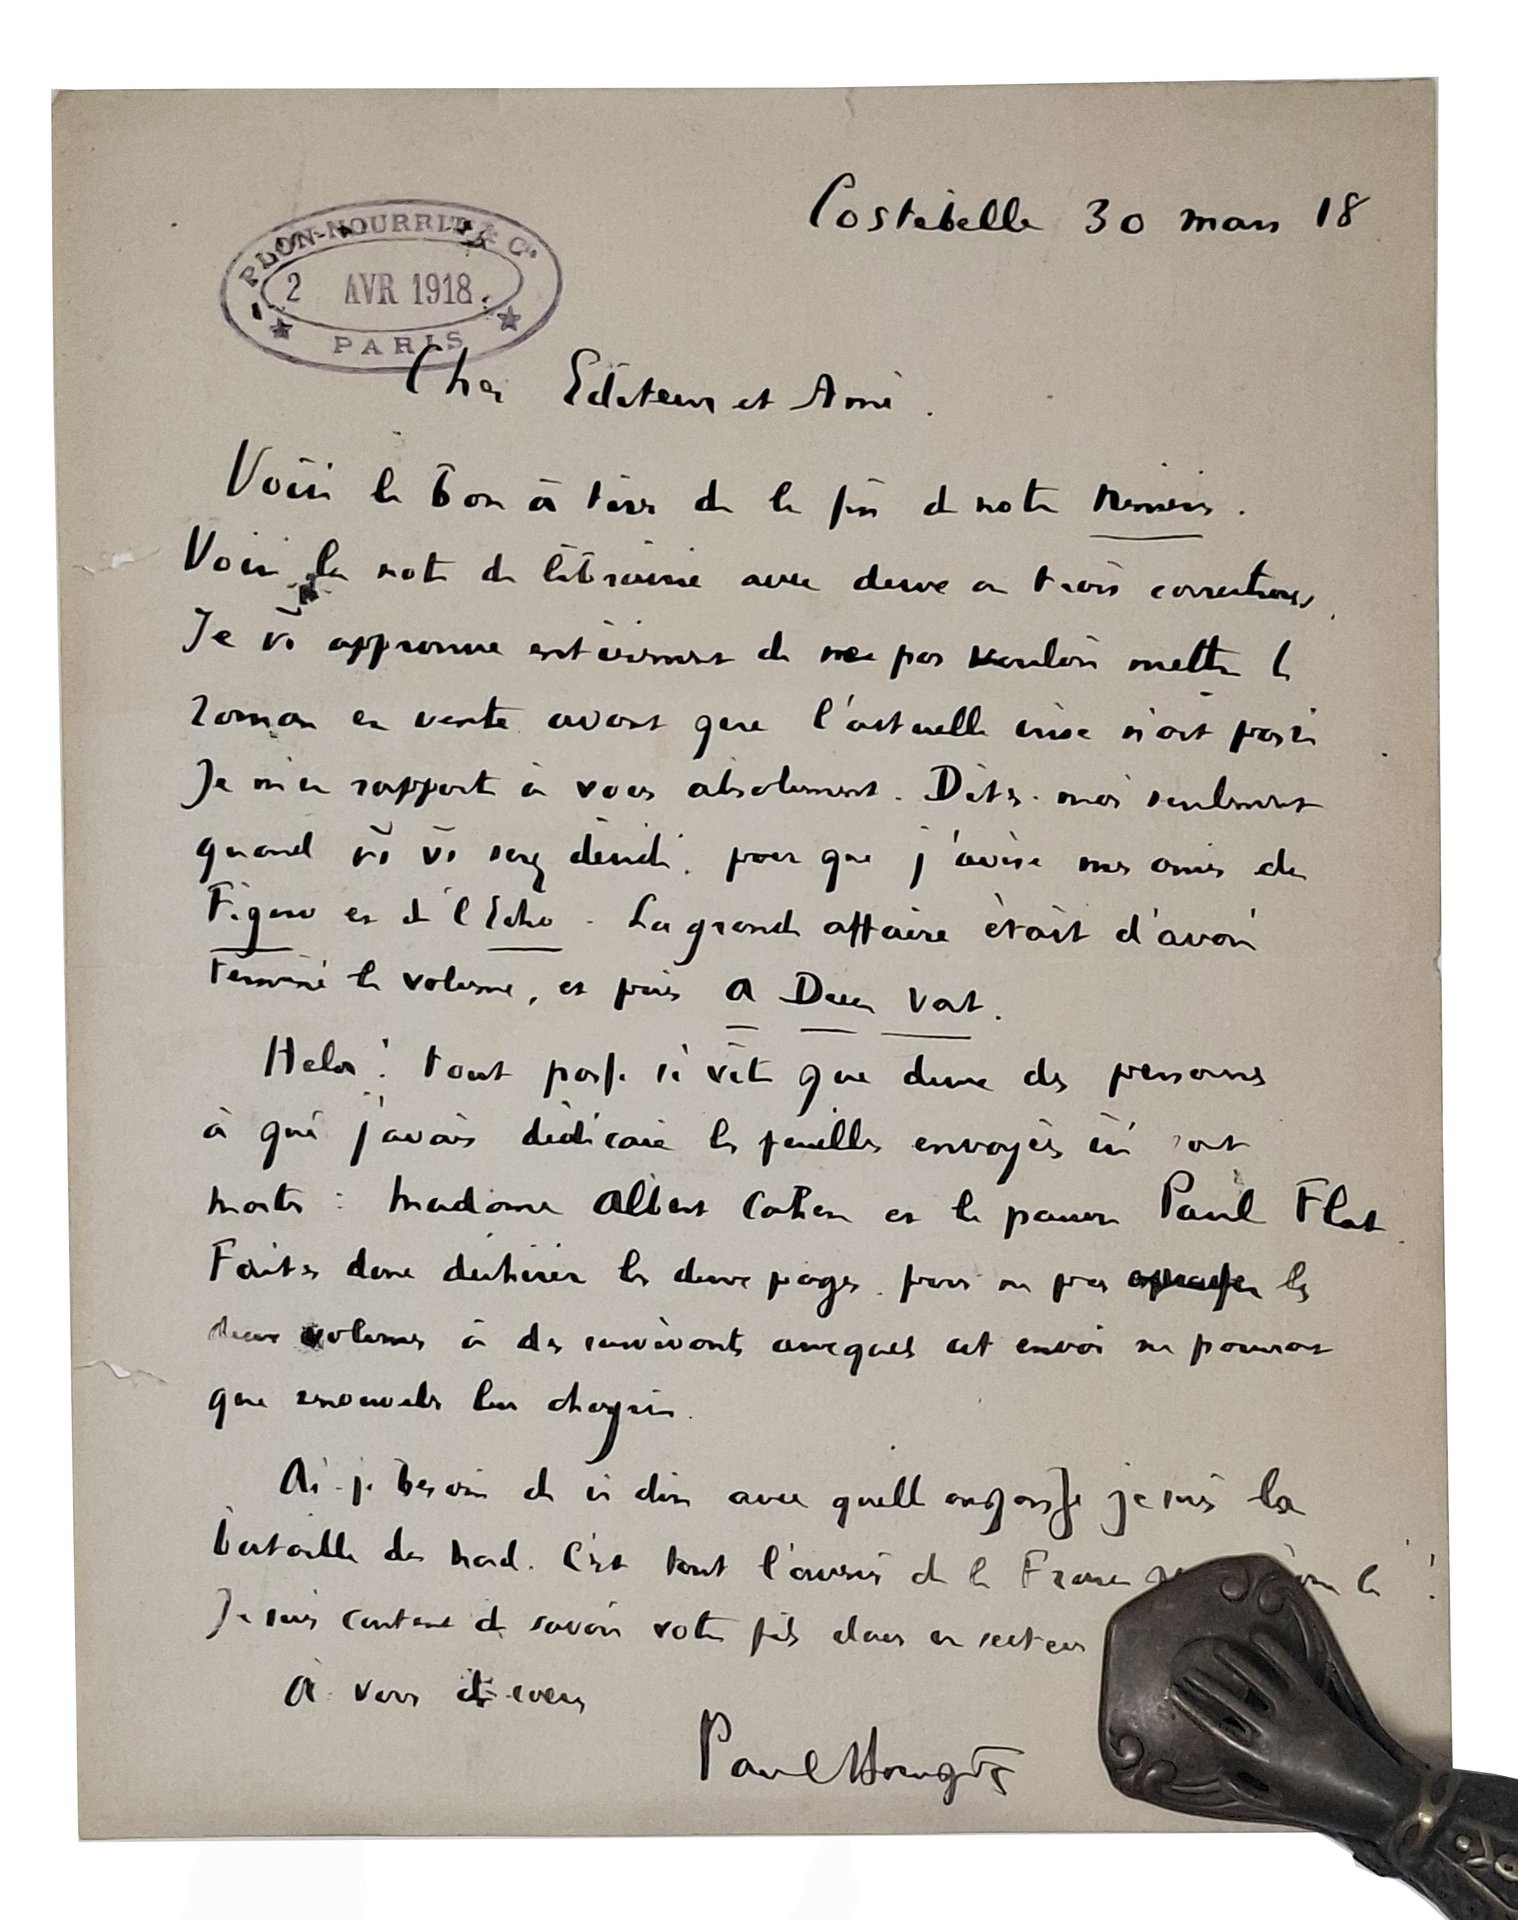 Costebelle 30 mars 18
PLON-NOURRIT & Cie
2 AVR 1918
PARIS
Cher Editeur et Ami.
Voici le bon à tirer de la fin de notre Némésis.
Voici la note de librairie avec deux ou trois corrections.
Je vs approuve entièrement de ne pas vouloir mettre le
roman en vente avant que l'actuelle crise n'ait passé
Je m'en rapporte à vous absolument. Dites-moi seulement
quand vs vs serez décidé, pour que j'avise mes amis du
Figaro et de l'Echo. La grande affaire était d'avoir
terminé le volume, et puis A Dieu Vat.
Helas! tout passe si vite que deux des personnes
à qui j'avais dédicacé les feuilles envoyées ici sont
mortes : Madame Albert Cahen et le pauvre Paul Flat.
Faites donc déchirer les deux pages pour ne pas les
deux volumes à des survivants auxquels cet envoi ne pourrait
que renouveler leur chagrin.
Ai-je besoin de vs dire avec quelle angoisse je suis la
bataille du Nord. C'est tout l'avenir de la France
Je suis content de savoir votre fils dans un secteur
A vous de coeur
Paul Bourget